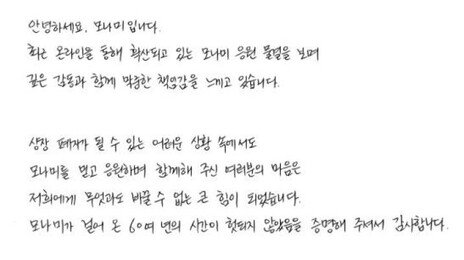 안녕하세요, 모나미입니다.
최근 온라인을 통해 확산되고 있는 모나미 응원 물결을 보며
깊은 감동과 함께 막중한 책임감을 느끼고 있습니다.
상장 폐지가 될 수 있는 어려운 상황 속에서도
모나미를 믿고 응원하며 함께해 주신 여러분의 마음은
저희에게 무엇과도 바꿀 수 없는 큰 힘이 되었습니다.
모나미가 걸어 온 60여 년의 시간이 헛되지 않았음을 증명해 주셔서 감사합니다.